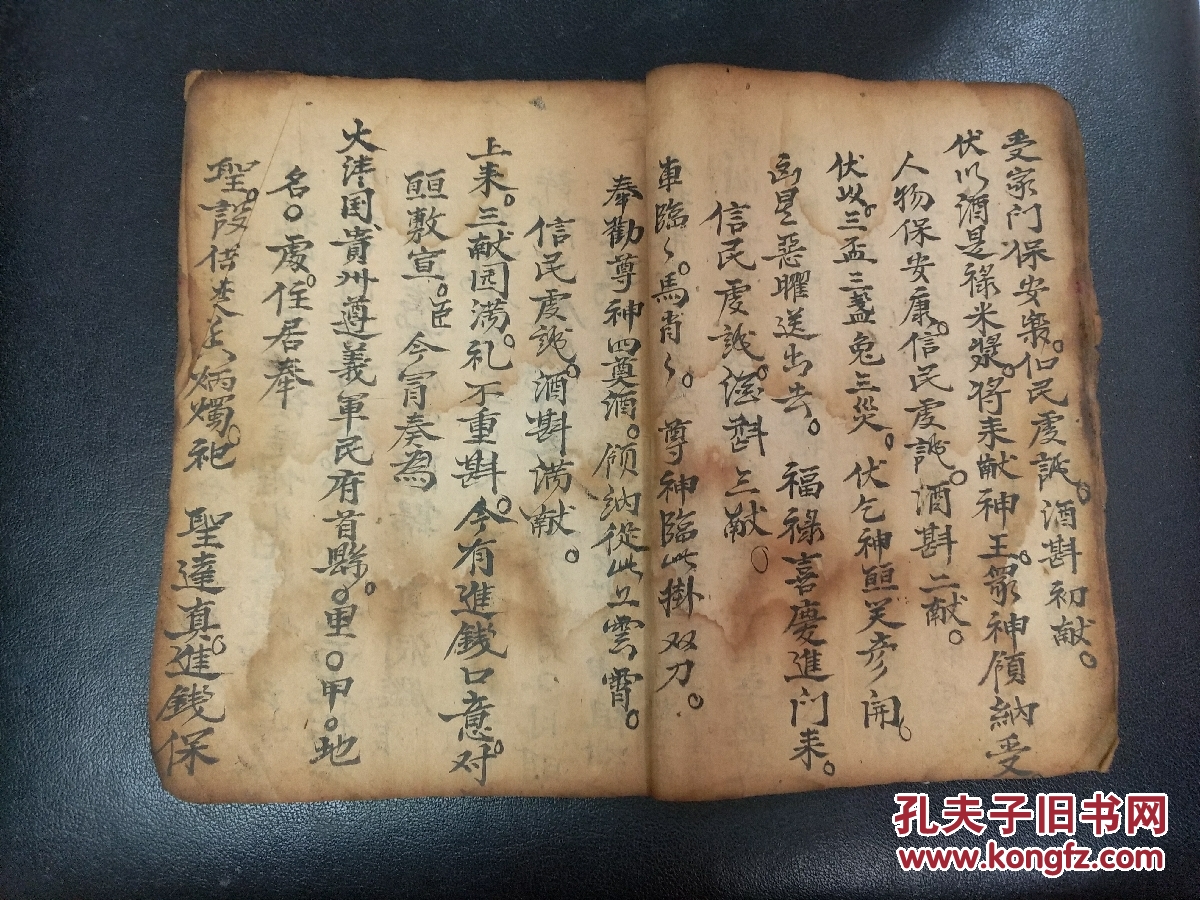 受家门保安裳。伯民虔誠。酒斟初献。
伏以酒是禄米漿。将来献神王。眾神領納受
人物保安康。信民虔誠。酒斟二献。
伏以。三盃三盞免三災。伏乞神 笑彦開。
凶星惡曜送出去。福禄喜慶進门来。
信民虔誠。酒斟三献。
車臨々。馬肖々。尊神臨此掛双刀。
奉勸尊神四奠酒。領納從此上雲霄。
信民虔誠。酒斟满献。
上来。三献园满。礼不重斟。今有進錢口意。对
敷宣。臣今冐奏為
大清国。貴州遵義軍民府首縣。里。甲。地
名。處。住居奉
聖。設 炳燭。祀聖達真。進錢保
孔夫子旧书网
www.kongfz.com